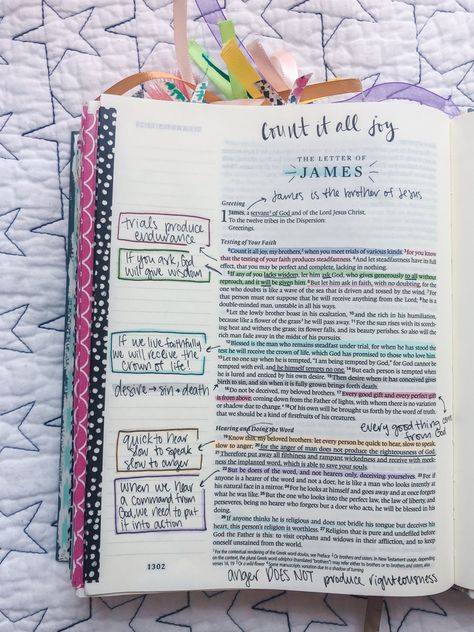 Count it all joy
THE LETTER OF
JAMES
James is the brother of Jesus
Greeting
1 James, a servant of God and of the Lord Jesus Christ,
To the twelve tribes in the Dispersion:
Greetings.
trials produce
endurance
If you ask, God
will give wisdom
If we live faithfully
we will receive the
crown of life!
desire → sin → death
quick to hear
slow to speak
slow to anger
When we hear
a command from
God, we need to put
it into action
Testing of Your Faith
2 Count it all joy, my brothers, when you meet trials of various kinds, 3 for you know
that the testing of your faith produces steadfastness. 4 And let steadfastness have its full
effect, that you may be perfect and complete, lacking in nothing.
5 If any of you lacks wisdom, let him ask God, who gives generously to all without
reproach, and it will be given him. 6 But let him ask in faith, with no doubting, for the
one who doubts is like a wave of the sea that is driven and tossed by the wind. 7 For
that person must not suppose that he will receive anything from the Lord; 8 he is a
double-minded man, unstable in all his ways.
9 Let the lowly brother boast in his exaltation, 10 and the rich in his humiliation,
because like a flower of the grass he will pass away. 11 For the sun rises with its scorch-
ing heat and withers the grass; its flower falls, and its beauty perishes. So also will the
rich man fade away in the midst of his pursuits.
12 Blessed is the man who remains steadfast under trial, for when he has stood the
test he will receive the crown of life, which God has promised to those who love him.
13 Let no one say when he is tempted, "I am being tempted by God," for God cannot be
tempted with evil, and he himself tempts no one. 14 But each person is tempted when
he is lured and enticed by his own desire. 15 Then desire when it has conceived gives
birth to sin, and sin when it is fully grown brings forth death.
16 Do not be deceived, my beloved brothers. 17 Every good gift and every perfect gift
is from above, coming down from the Father of lights, with whom there is no variation
or shadow due to change. 18 Of his own will he brought us forth by the word of truth,
that we should be a kind of firstfruits of his creatures.
every good thing comes
from God
Hearing and Doing the Word
19 Know this, my beloved brothers: let every person be quick to hear, slow to speak,
slow to anger; 20 for the anger of man does not produce the righteousness of God.
21 Therefore put away all filthiness and rampant wickedness and receive with meek-
ness the implanted word, which is able to save your souls.
22 But be doers of the word, and not hearers only, deceiving yourselves. 23 For if
anyone is a hearer of the word and not a doer, he is like a man who looks intently at
his natural face in a mirror. 24 For he looks at himself and goes away and at once forgets
what he was like. 25 But the one who looks into the perfect law, the law of liberty, and
perseveres, being no hearer who forgets but a doer who acts, he will be blessed in his
doing.
26 If anyone thinks he is religious and does not bridle his tongue but deceives his
heart, this person's religion is worthless. 27 Religion that is pure and undefiled before
God the Father is this: to visit orphans and widows in their affliction, and to keep
oneself unstained from the world.
1302
anger DOES NOT produce righteousness